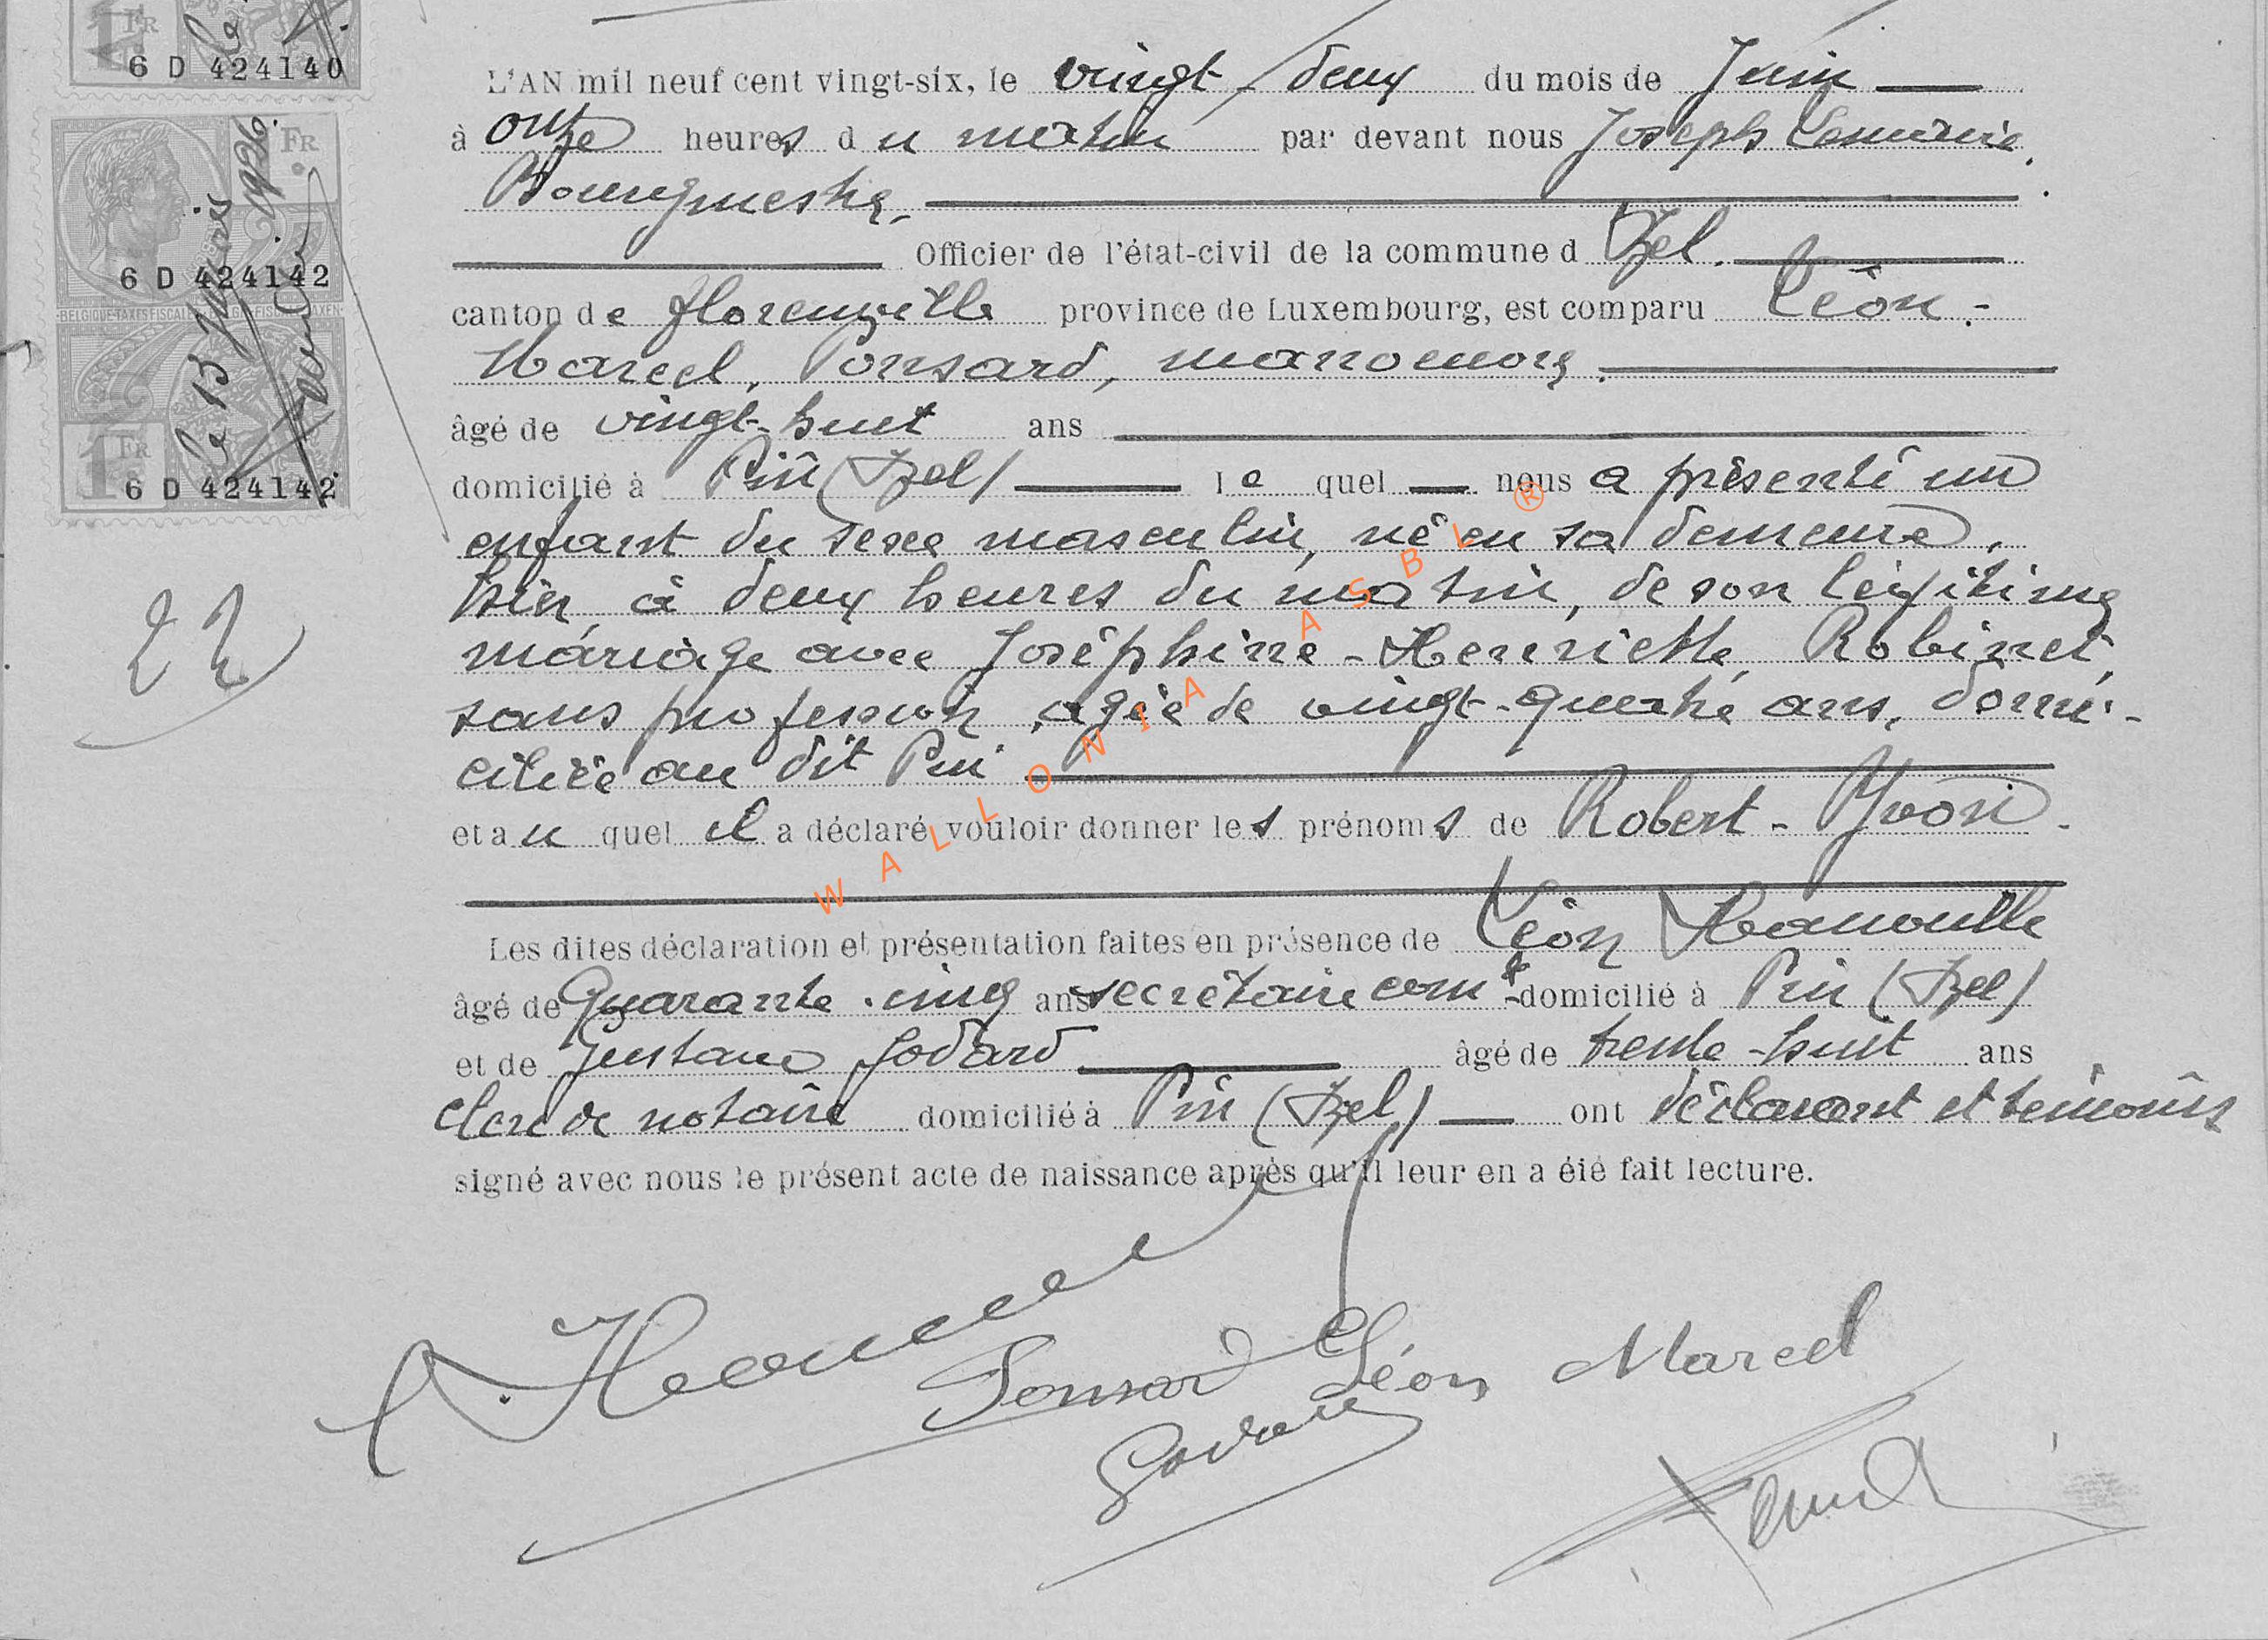 FR
6 D 424140
FR
1926.
6 D 424142
BELGIQUE-TAXES FISCALES
le 13 Janvier
FR
6 D 424142
22
L'AN mil neuf cent vingt-six, le vingt-deux du mois de Juin
à onze heures du matin par devant nous Joseph
Bourgmestre,
Officier de l'état-civil de la commune d'Izel.
canton de Florenville province de Luxembourg, est comparu Léon-
Marcel, Ponsard, manoeuvre.
âgé de vingt-huit ans
domicilié à Pin (Izel) le quel nous a présenté un
enfant du sexe masculin, né en sa demeure,
hier, à deux heures du matin, de son légitime
mariage avec Joséphine-Henriette Robinet,
sans profession, agée de vingt-quatre ans, domi-
ciliée au dit Pin
et au quel il a déclaré vouloir donner les prénoms de Robert-Yvon.
Les dites déclaration et présentation faites en présence de Léon Hanouille
âgé de Quarante-cinq ans secrétaire comal domicilié à Pin (Izel)
et de Gustave Godard âgé de trente-huit ans
clerc de notaire domicilié à Pin (Izel) ont déclarant et témoins
signé avec nous le présent acte de naissance après qu'il leur en a été fait lecture.
Ponsard Léon Marcel
Godard
WALLONIA ASBL ®